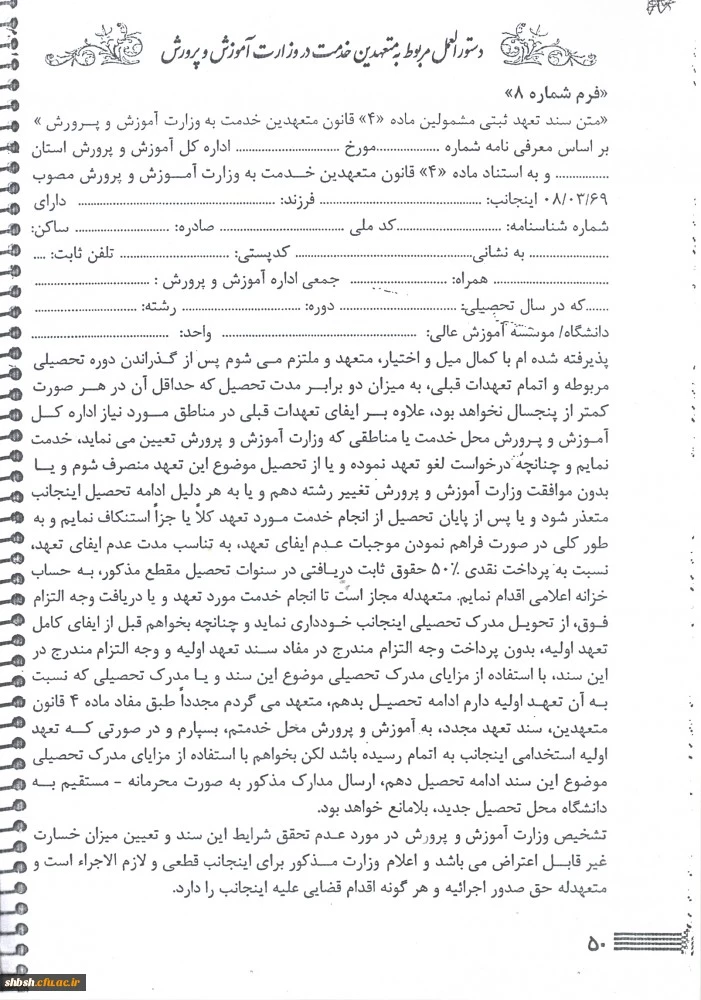 دستورالعمل مربوط به متعهدین خدمت در وزارت آموزش و پرورش
«فرم شماره ۸»
«متن سند تعهد ثبتی مشمولین ماده «۴» قانون متعهدین خدمت به وزارت آموزش و پرورش »
بر اساس معرفی نامه شماره ..................مورخ ............................ اداره کل آموزش و پرورش استان
............... و به استناد ماده «۴» قانون متعهدین خدمت به وزارت آموزش و پرورش مصوب
۰۸/۰۳/۶۹ اینجانب: ............................................ فرزند: ............................................ دارای
شماره شناسنامه: ............................کد ملی .................................... صادره: ......................... ساکن:
...................... به نشانی............................................... کدپستی: ............................. تلفن ثابت: ....
....................................... همراه: .......................... جمعی اداره آموزش و پرورش : ...............................
......که در سال تحصیلی: ............................... دوره: ................................ رشته: ..............................
دانشگاه/ موسسه آموزش عالی: .................................................... واحد: .....................................
پذیرفته شده ام با کمال میل و اختیار، متعهد و ملتزم می شوم پس از گذراندن دوره تحصیلی
مربوطه و اتمام تعهدات قبلی، به میزان دو برابر مدت تحصیل که حداقل آن در هر صورت
کمتر از پنجسال نخواهد بود، علاوه بر ایفای تعهدات قبلی در مناطق مورد نیاز اداره کل
آموزش و پرورش محل خدمت یا مناطقی که وزارت آموزش و پرورش تعیین می نماید، خدمت
نمایم و چنانچه درخواست لغو تعهد نموده و یا از تحصیل موضوع این تعهد منصرف شوم و یا
بدون موافقت وزارت آموزش و پرورش تغییر رشته دهم و یا به هر دلیل ادامه تحصیل اینجانب
متعذر شود و یا پس از پایان تحصیل از انجام خدمت مورد تعهد کلاً یا جزاً استنکاف نمایم و به
طور کلی در صورت فراهم نمودن موجبات عدم ایفای تعهد، به تناسب مدت عدم ایفای تعهد،
نسبت به پرداخت نقدی ۵۰٪ حقوق ثابت دریافتی در سنوات تحصیل مقطع مذکور، به حساب
خزانه اعلامی اقدام نمایم. متعهدله مجاز است تا انجام خدمت مورد تعهد و یا دریافت وجه التزام
فوق، از تحویل مدرک تحصیلی اینجانب خودداری نماید و چنانچه بخواهم قبل از ایفای کامل
تعهد اولیه، بدون پرداخت وجه التزام مندرج در مفاد سند تعهد اولیه و وجه التزام مندرج در
این سند، با استفاده از مزایای مدرک تحصیلی موضوع این سند و یا مدرک تحصیلی که نسبت
به آن تعهد اولیه دارم ادامه تحصیل بدهم، متعهد می گردم مجدداً طبق مفاد ماده ۴ قانون
متعهدین، سند تعهد مجدد، به آموزش و پرورش محل خدمتم، بسپارم و در صورتی که تعهد
اولیه استخدامی اینجانب به اتمام رسیده باشد لکن بخواهم با استفاده از مزایای مدرک تحصیلی
موضوع این سند ادامه تحصیل دهم، ارسال مدارک مذکور به صورت محرمانه - مستقیم به
دانشگاه محل تحصیل جدید، بلامانع خواهد بود.
تشخیص وزارت آموزش و پرورش در مورد عدم تحقق شرایط این سند و تعیین میزان خسارت
غیر قابل اعتراض می باشد و اعلام وزارت مذکور برای اینجانب قطعی و لازم الاجراء است و
متعهدله حق صدور اجرائیه و هر گونه اقدام قضایی علیه اینجانب را دارد.
۵۰
shbsh.cfu.ac.ir